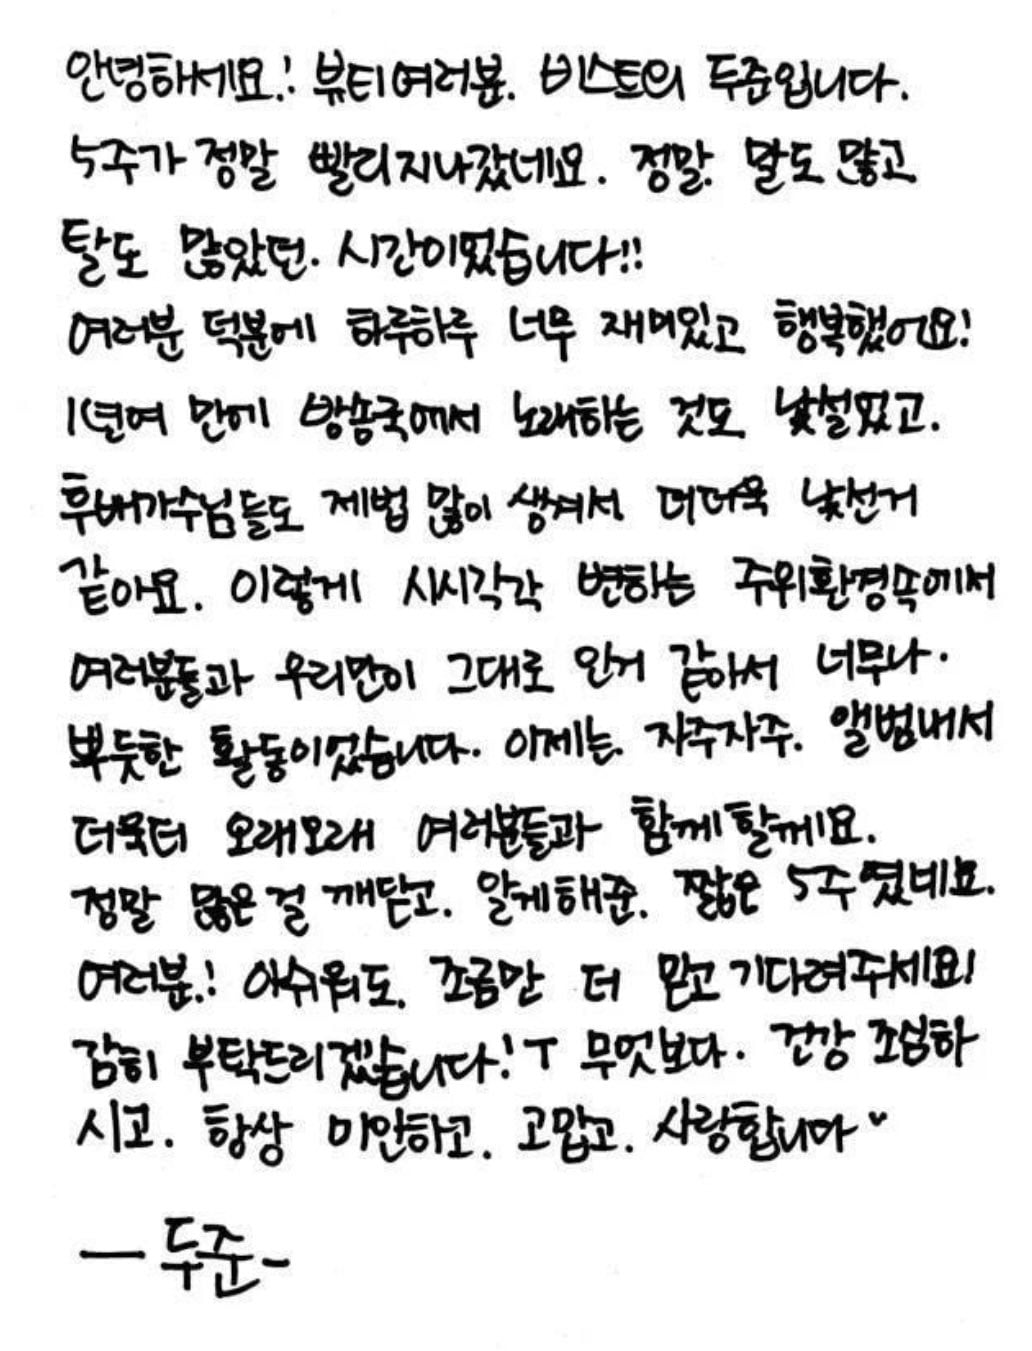 안녕하세요.! 뷰티여러분. 비스트의 두준입니다.
5주가 정말 빨리지나갔네요. 정말. 말도 많고
탈도 많았던. 시간이었습니다!!
여러분 덕분에 하루하루 너무 재미있고 행복했어요!
1년여 만에 방송국에서 노래하는 것도 낯설었고.
후배가수님들도 제법 많이 생겨서 더더욱 낯선거
같아요. 이렇게 시시각각 변하는 주위환경속에서
여러분들과 우리만이 그대로 인거 같아서 너무나.
뿌듯한 활동이었습니다. 이제는. 자주자주. 앨범내서
더욱더 오래오래 여러분들과 함께할께요.
정말 많은걸 깨닫고. 알게해준. 짧은 5주였네요.
여러분.! 아쉬워도. 조금만 더 믿고 기다려주세요!
감히 부탁드리겠습니다!T 무엇보다. 건강 조심하
시고. 항상 미안하고. 고맙고. 사랑합니다♥
— 두준 -